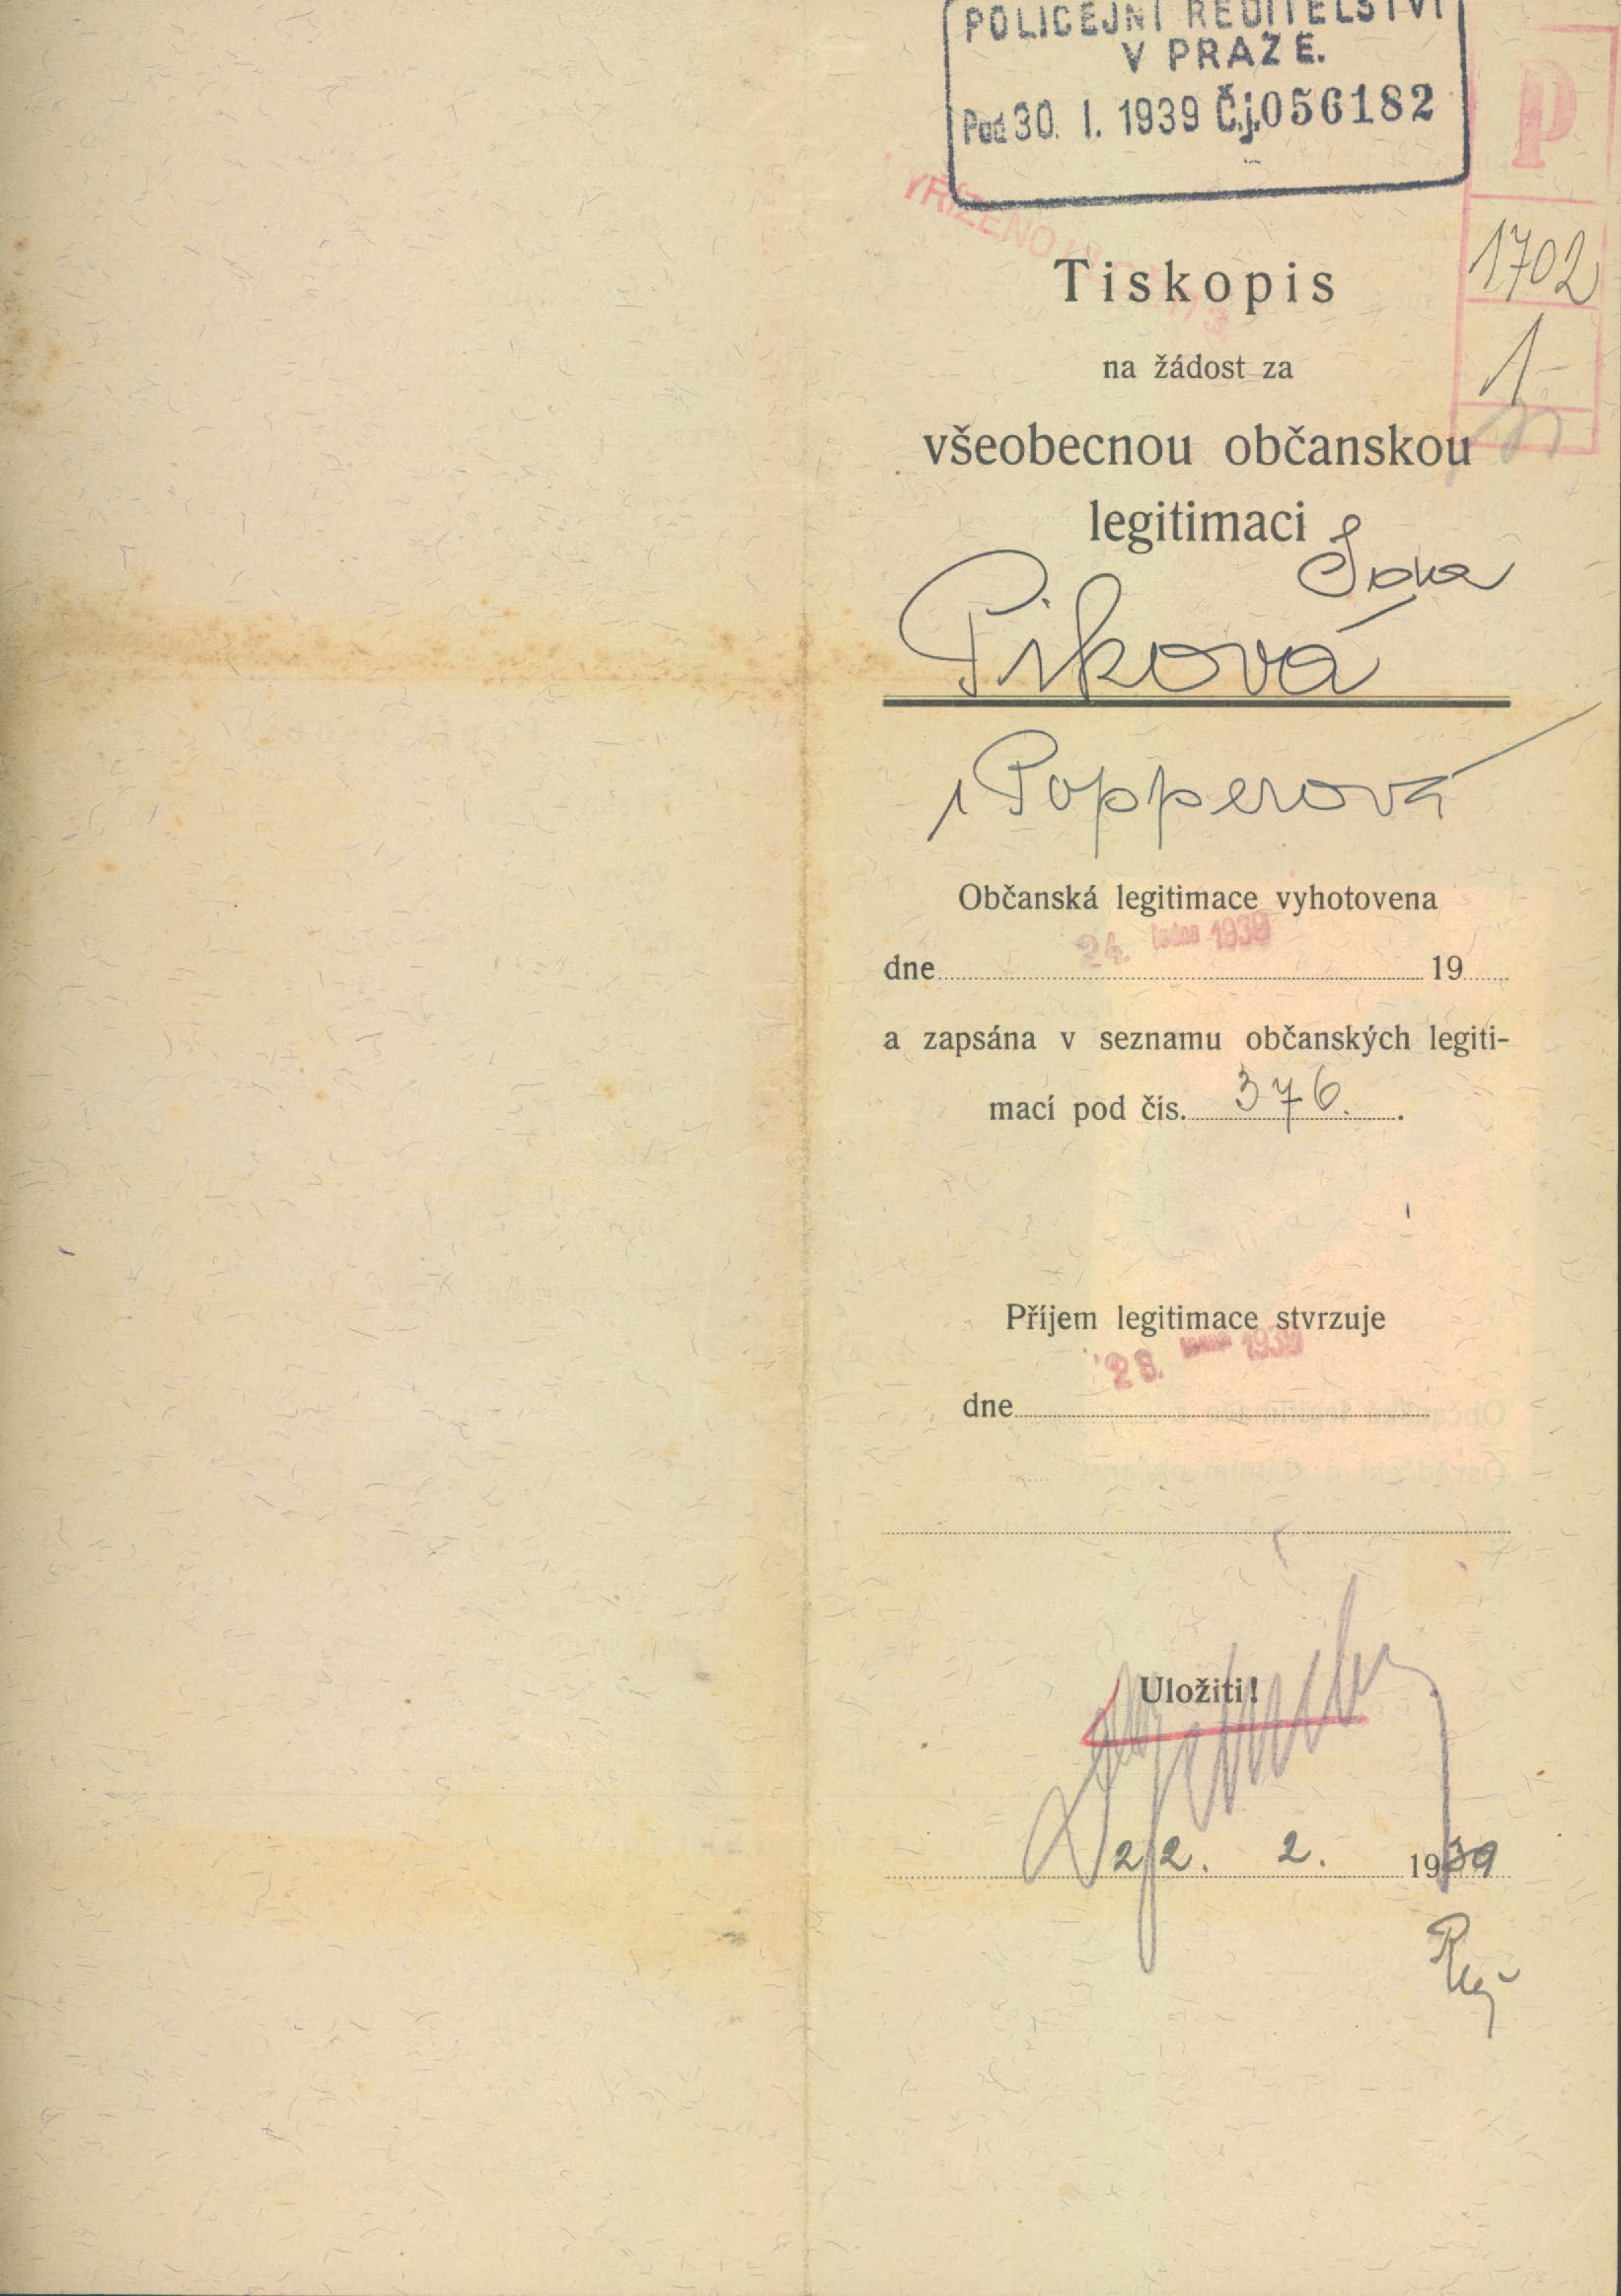 POLICEJNÍ ŘEDITELSTVÍ
V PRAZE.
Pod 30. I. 1939 Č.j. 056182
P
1702
1
Tiskopis
na žádost za
všeobecnou občanskou
legitimaci
Piková
i Popperová
Občanská legitimace vyhotovena
24. leden 1939
dne 19
a zapsána v seznamu občanských legiti-
mací pod čís. 376.
Příjem legitimace stvrzuje
28. 1939
dne
Uložiti!
22. 2. 1939